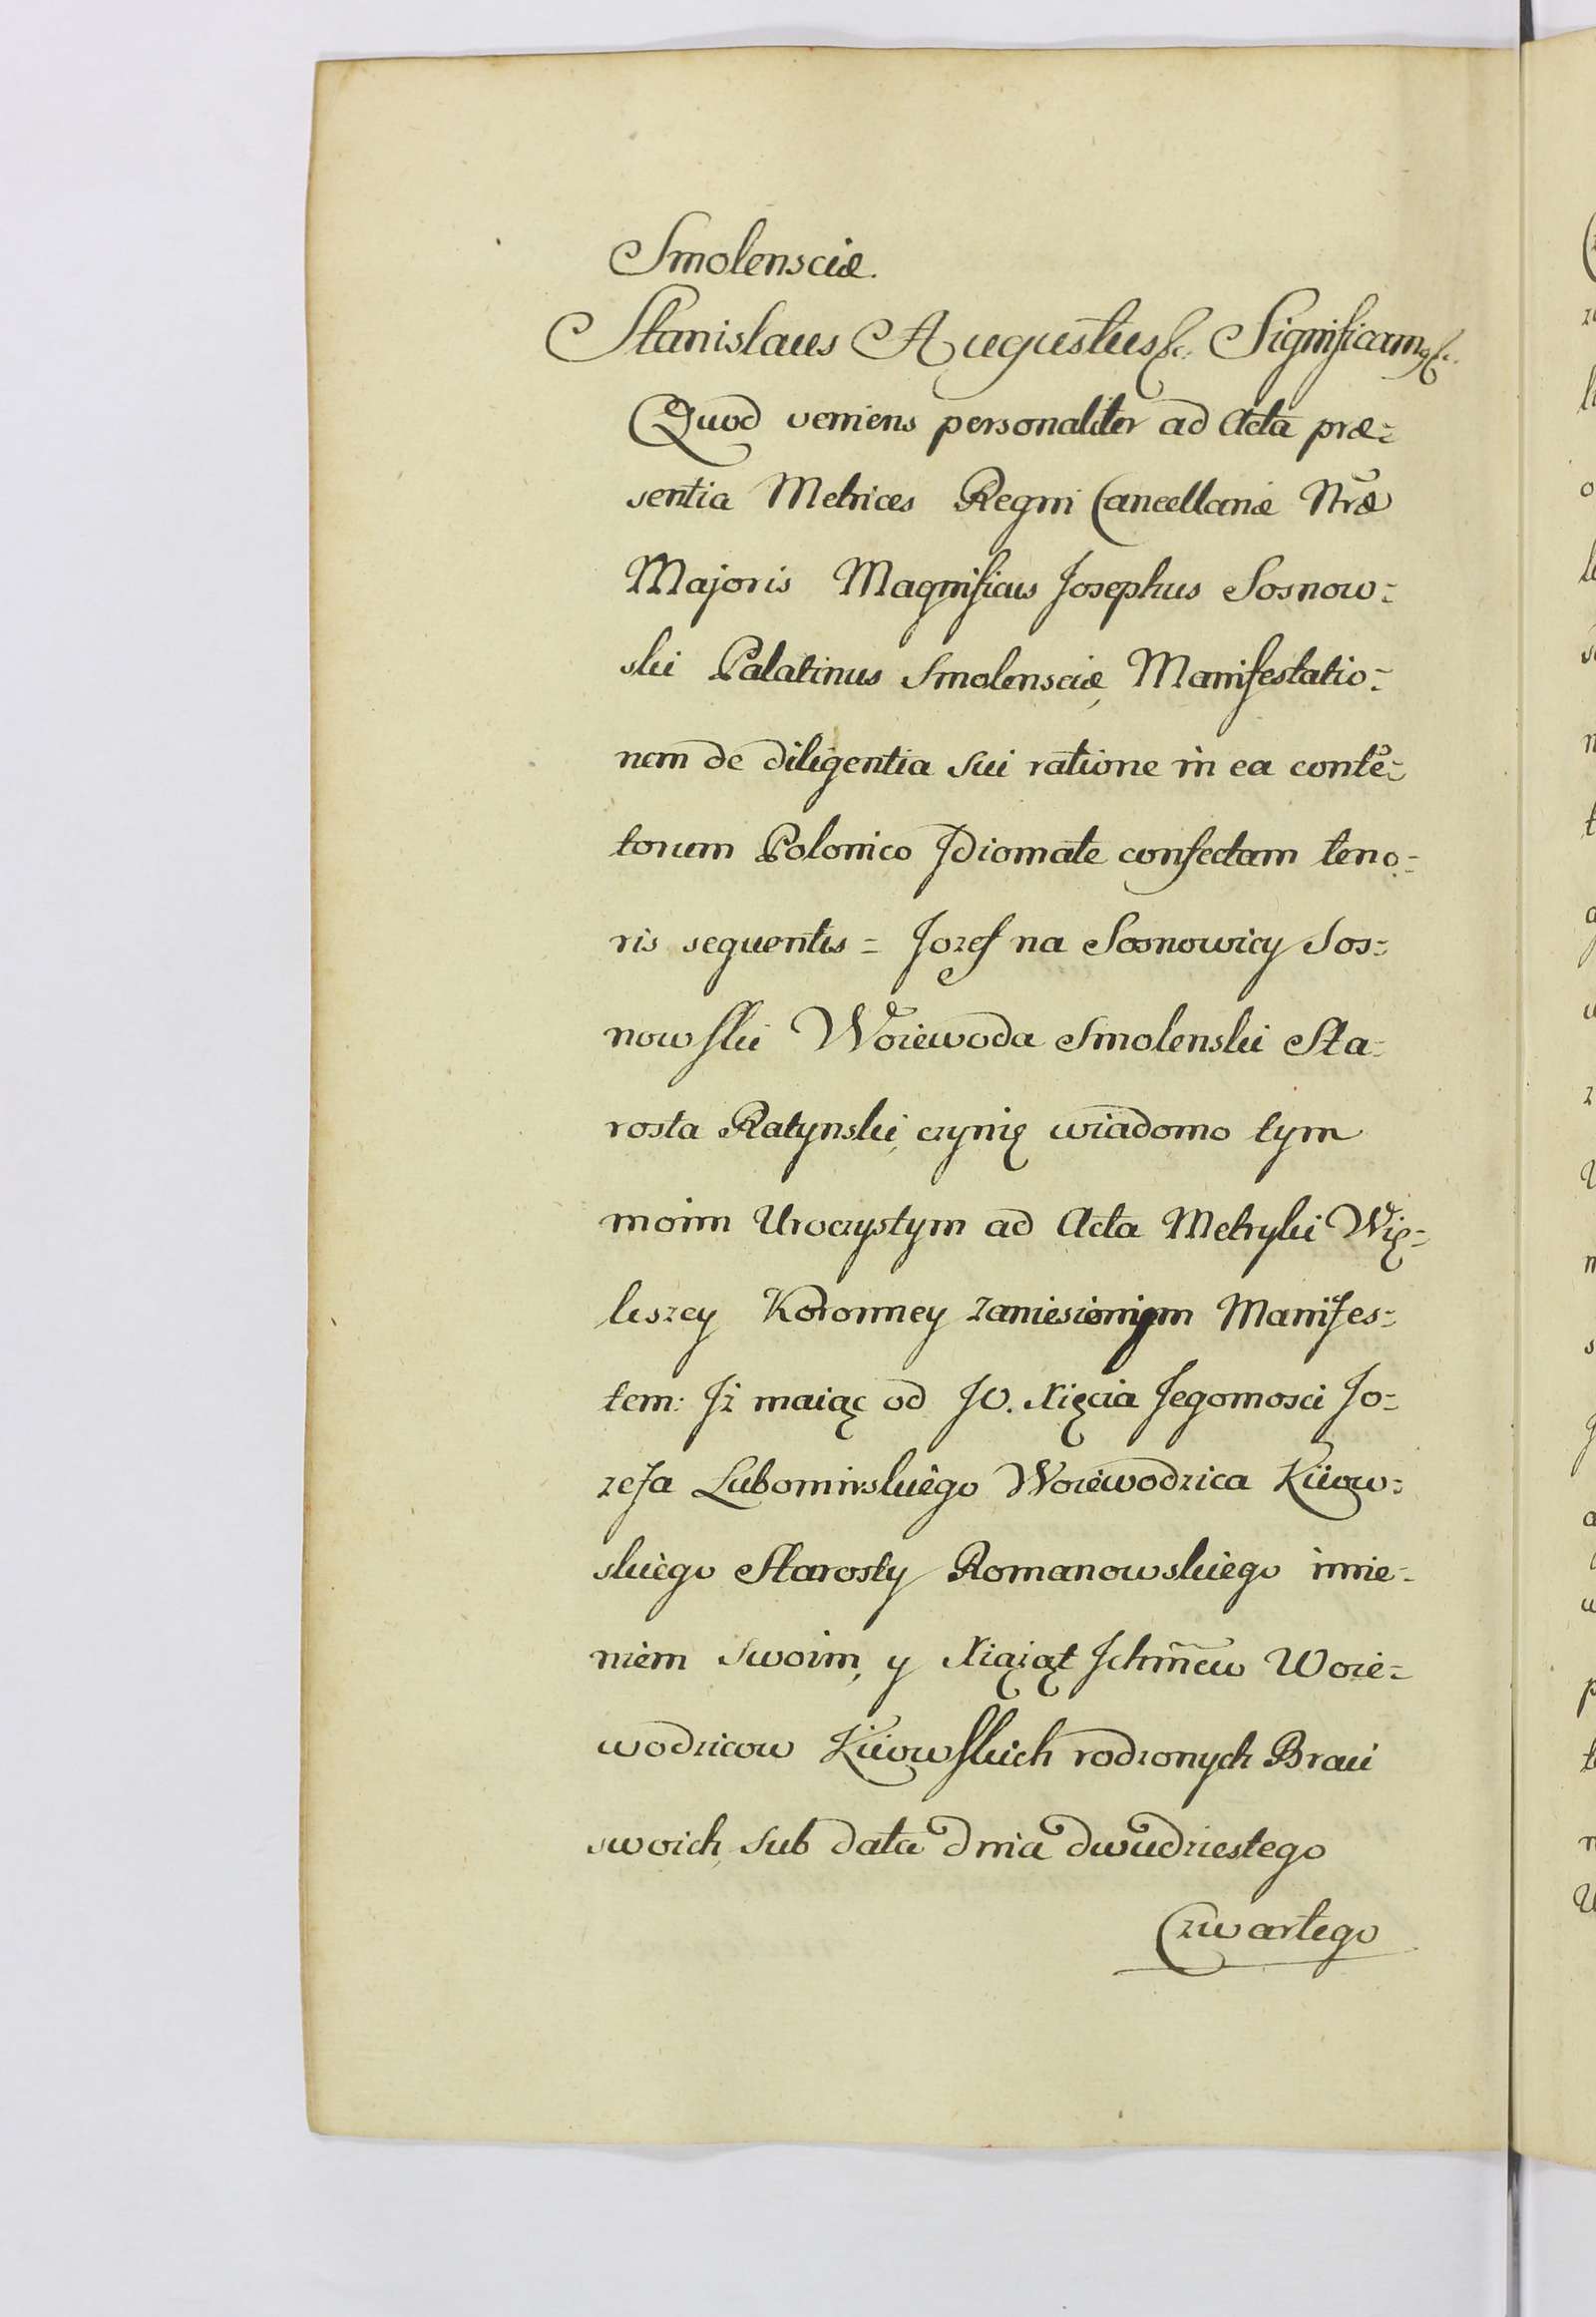 Smolensciæ.
Stanislaus Augustus &c. Significamq &c.
Quod veniens personaliter ad Acta præ=
sentia Metrices Regni Cancellariæ Nræ
Majoris Magnificus Josephus Sosnow=
ski Palatinus Smolensciæ, Manifestatio=
nem de diligentia sui ratione in ea conte=
torum Polonico Jdiomate confectam teno=
ris sequentis = Jozef na Sosnowicy Sos=
nowski Woiewoda Smolenski Sta=
rosta Ratynski, czynię wiadomo tym
moim Uroczystym ad Acta Metryki Wię=
kszey Koronney zaniesionym Manifes=
tem: Jż maiąc od JO. Xięcia Jegomosci Jo=
zefa Lubomirskiego Woiewodzica Kiiow=
skiego Starosty Romanowskiego imie=
niem swoim, y Xiążąt Jchmcw Woie=
wodzicow Kiiowskich rodzonych Braci
swoich, sub data dnia dwudziestego
Czwartego